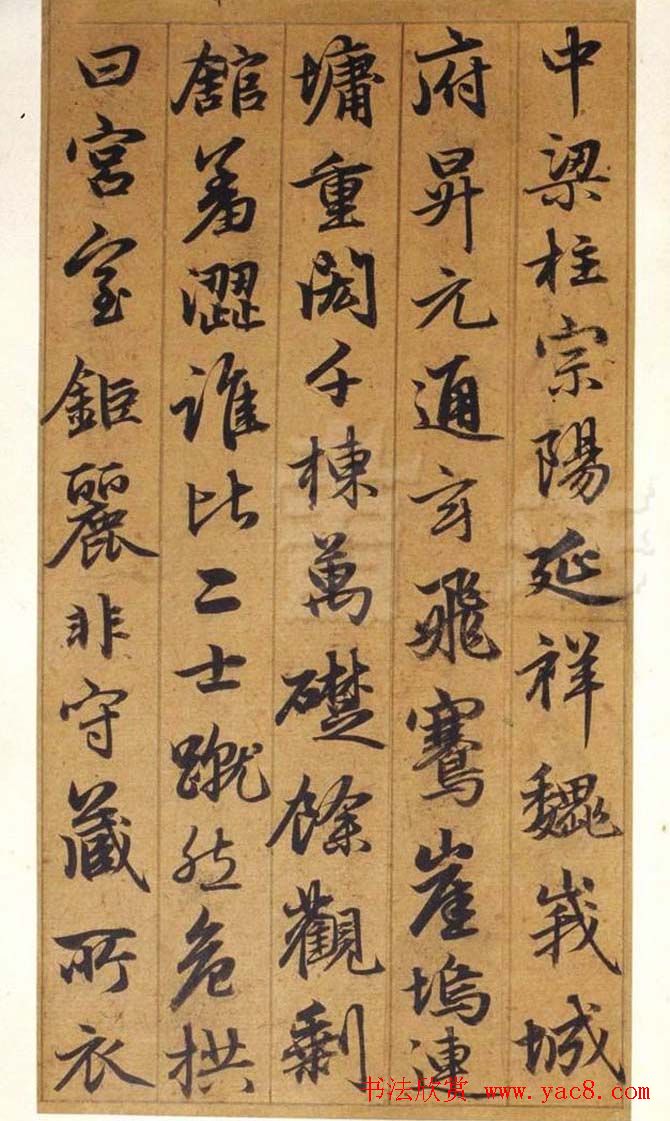 中梁柱宗陽延祥巍峩城
府昇元通玄飛騫崖塢連
墉重闼千棟萬礎餘觀剩
舘羞澀誰比二士蹴然危拱
曰宮室鉅麗非守藏所衣
书法欣赏 www.yac8.com